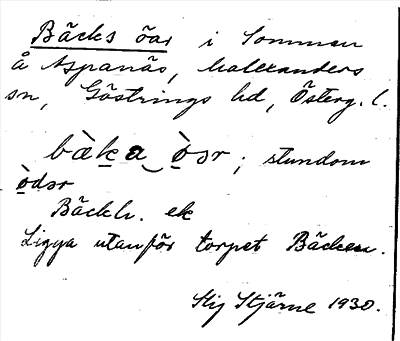 Bäcks öar i Sommen
å Aspanäs, Malexanders
sn, Göstrings hd, Österg. l.
bàka‿ò̤ər ; stundom
ò̤dər
Bäckh. ek
Ligga utanför torpet Bäcken.
Stig Stjärne 1930.